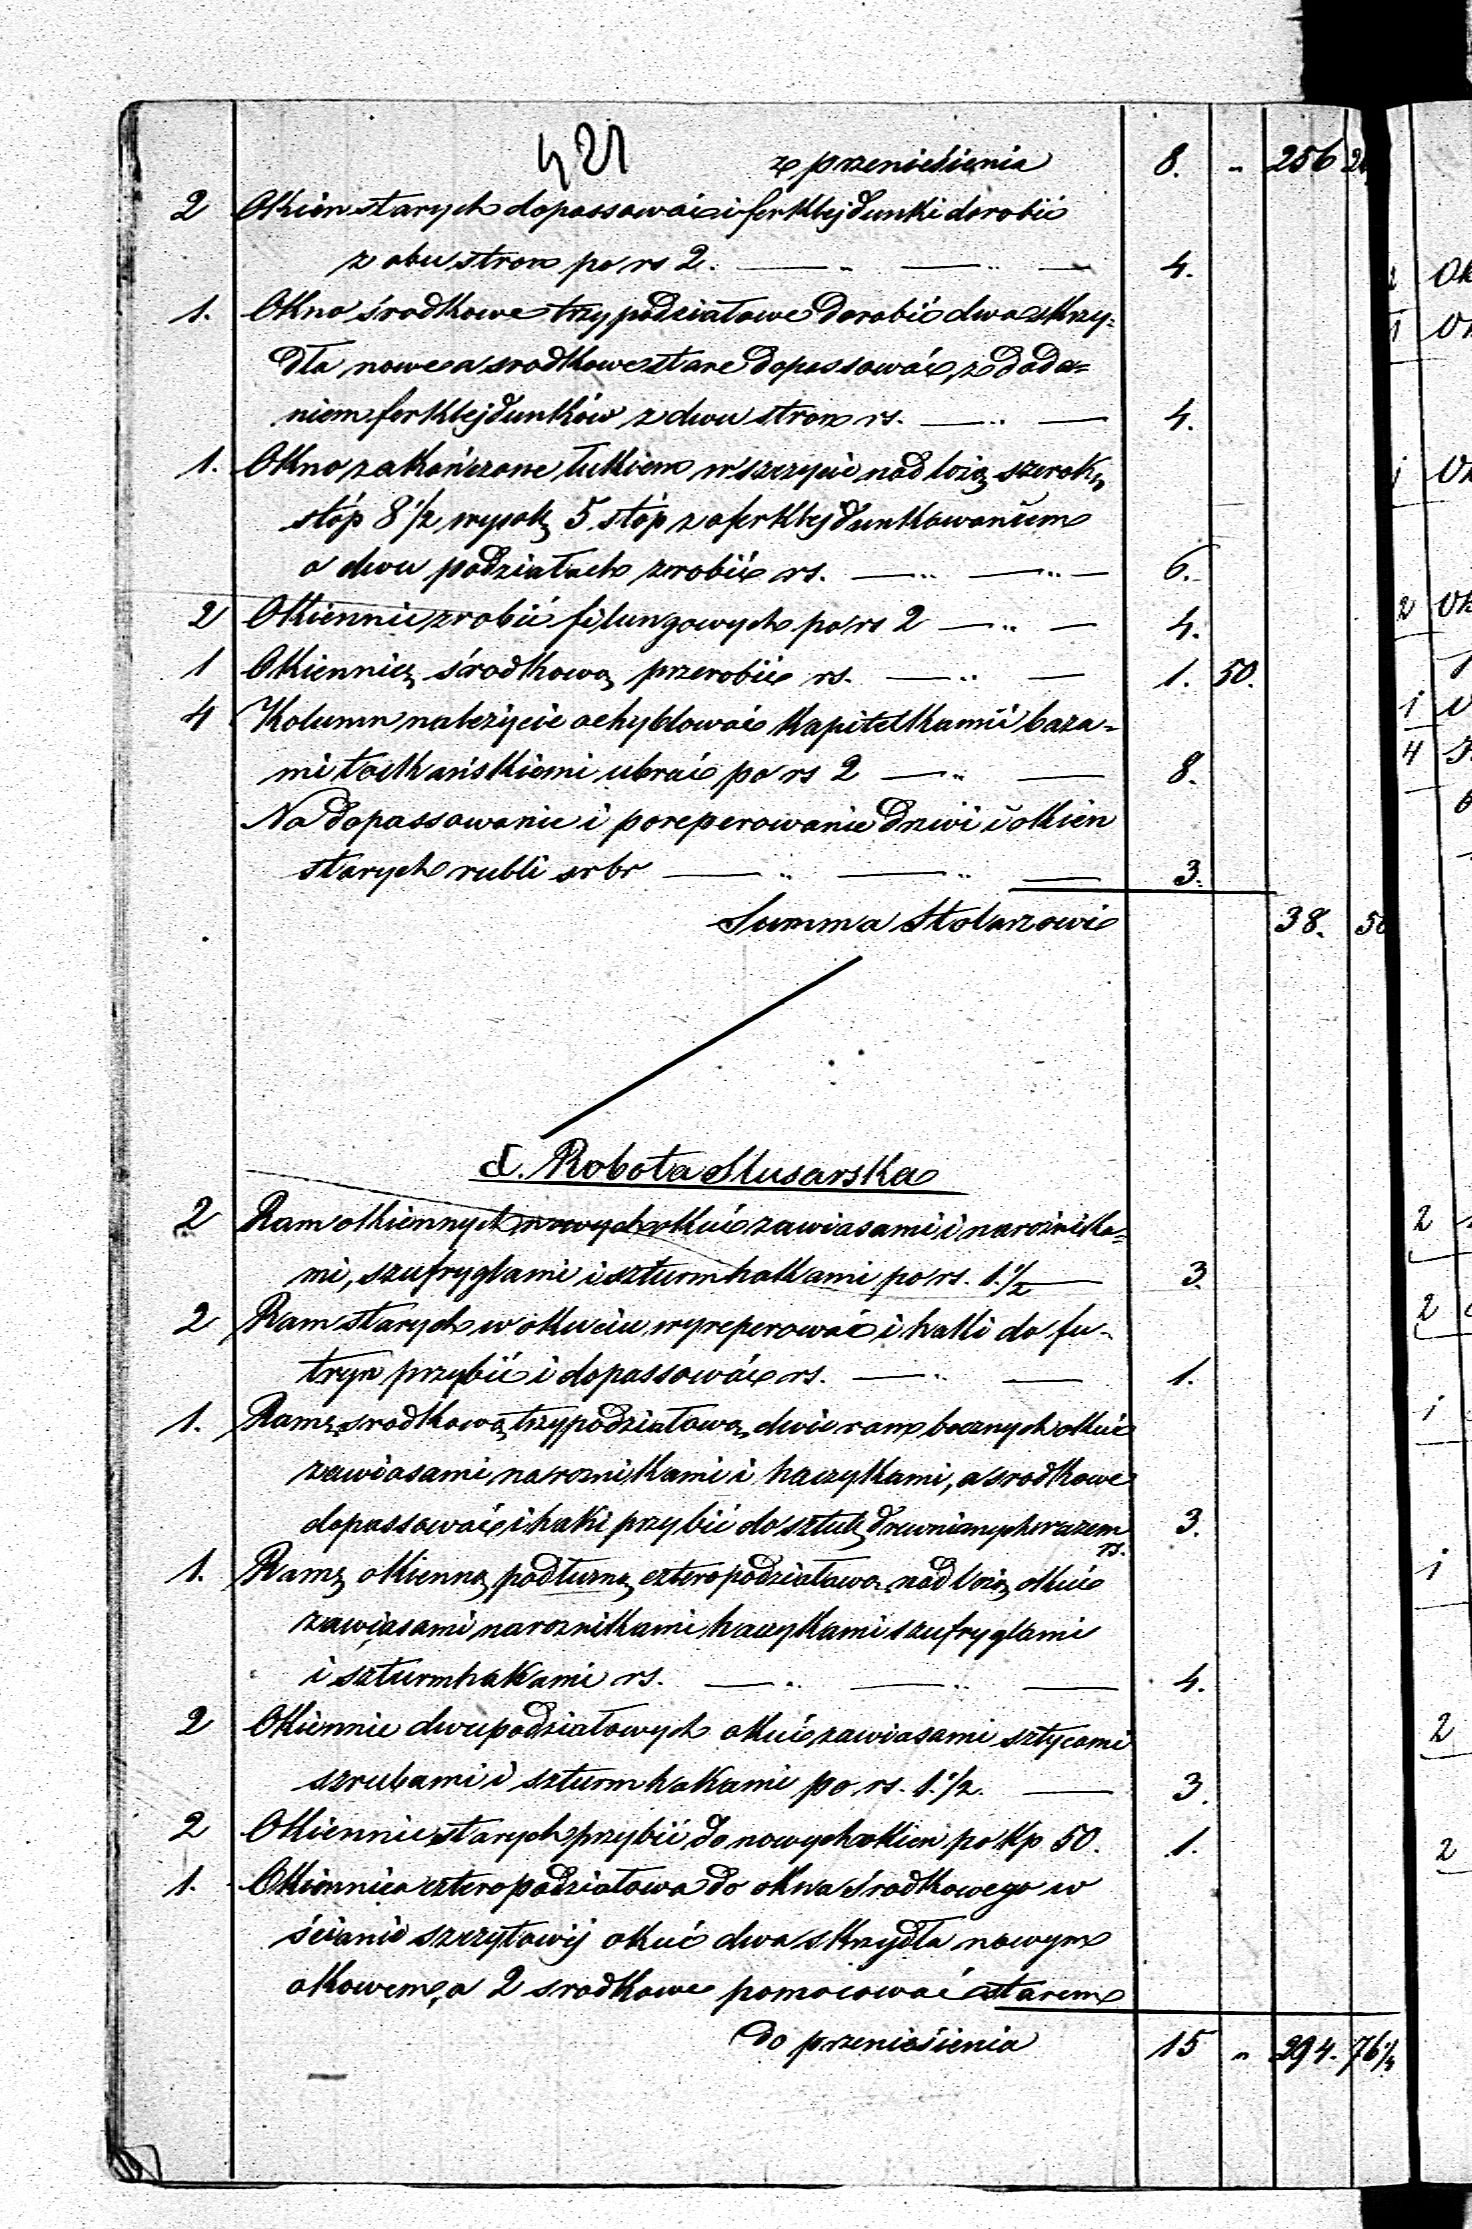 421
z przeniesienia 8. " 256 26
2 Okien starych dopassować i ferklejdunki dorobić
z obu stron po rs 2. — " — " — 4.
1. Okno środkowe trzypodziałowe dorobić dwa skrzy=
dła nowe a srodkowe stare dopassować, z doda=
niem ferklejdunków z dwu stron rs. — " — 4.
1. Okno zakończone łukiem w szczycie nad lożą szerok.
stóp 8 1/2 wysok. 5 stóp z aferklejdunkowaniem
o dwu podziałach zrobić rs. — " — " — 6.
2 Okiennic zrobić filungowych po rs 2 — " — 4.
1 Okiennicę środkową przerobić rs. — " — 1. 50.
4 Kolumn należycie ochyblować kapitelkami i baza=
mi toskańskiemi ubrać po rs 2 — " — 8.
Na dopassowanie i poreperowanie drzwi i okien
starych rubli srbr — " — " — 3.
Summa Stolarzowi 38. 50
d. Robota Slusarska
2 Ram okiennych nowych okuć zawiasami i narożnika=
mi, szufryglami i szturmhakami po rs. 1. 1/2 — 3.
2 Ram starych w okuciu wyreperować i haki do fu=
tryn przybić i dopassować rs. — " — 1.
1. Ramę srodkową trzypodziałową, dwie ram bocznych okuć
zawiasami naroznikami i haczykami, a srodkowe
dopassować i haki przybić do sztuk drewnianych razem rs. 3.
1. Ramę okienną podłużną czteropodziałową nad lożą okuć
zawiasami naroznikami haczykami szufryglami
i szturmhakami rs. — " — " — 4.
2 Okiennic dwupodziałowych okuć zawiasami sztycami
szrubami i szturmhakami po rs. 1. 1/2. — 3.
2 Okiennic starych przybić do nowych okien po kp 50. 1.
1. Okiennica czteropodziałowa do okna środkowego w
ścianie szczytowéj okuć dwa skrzydła nowym
okowem, a 2 srodkowe pomocować starem
do przeniesienia 15 " 294. 76 1/2